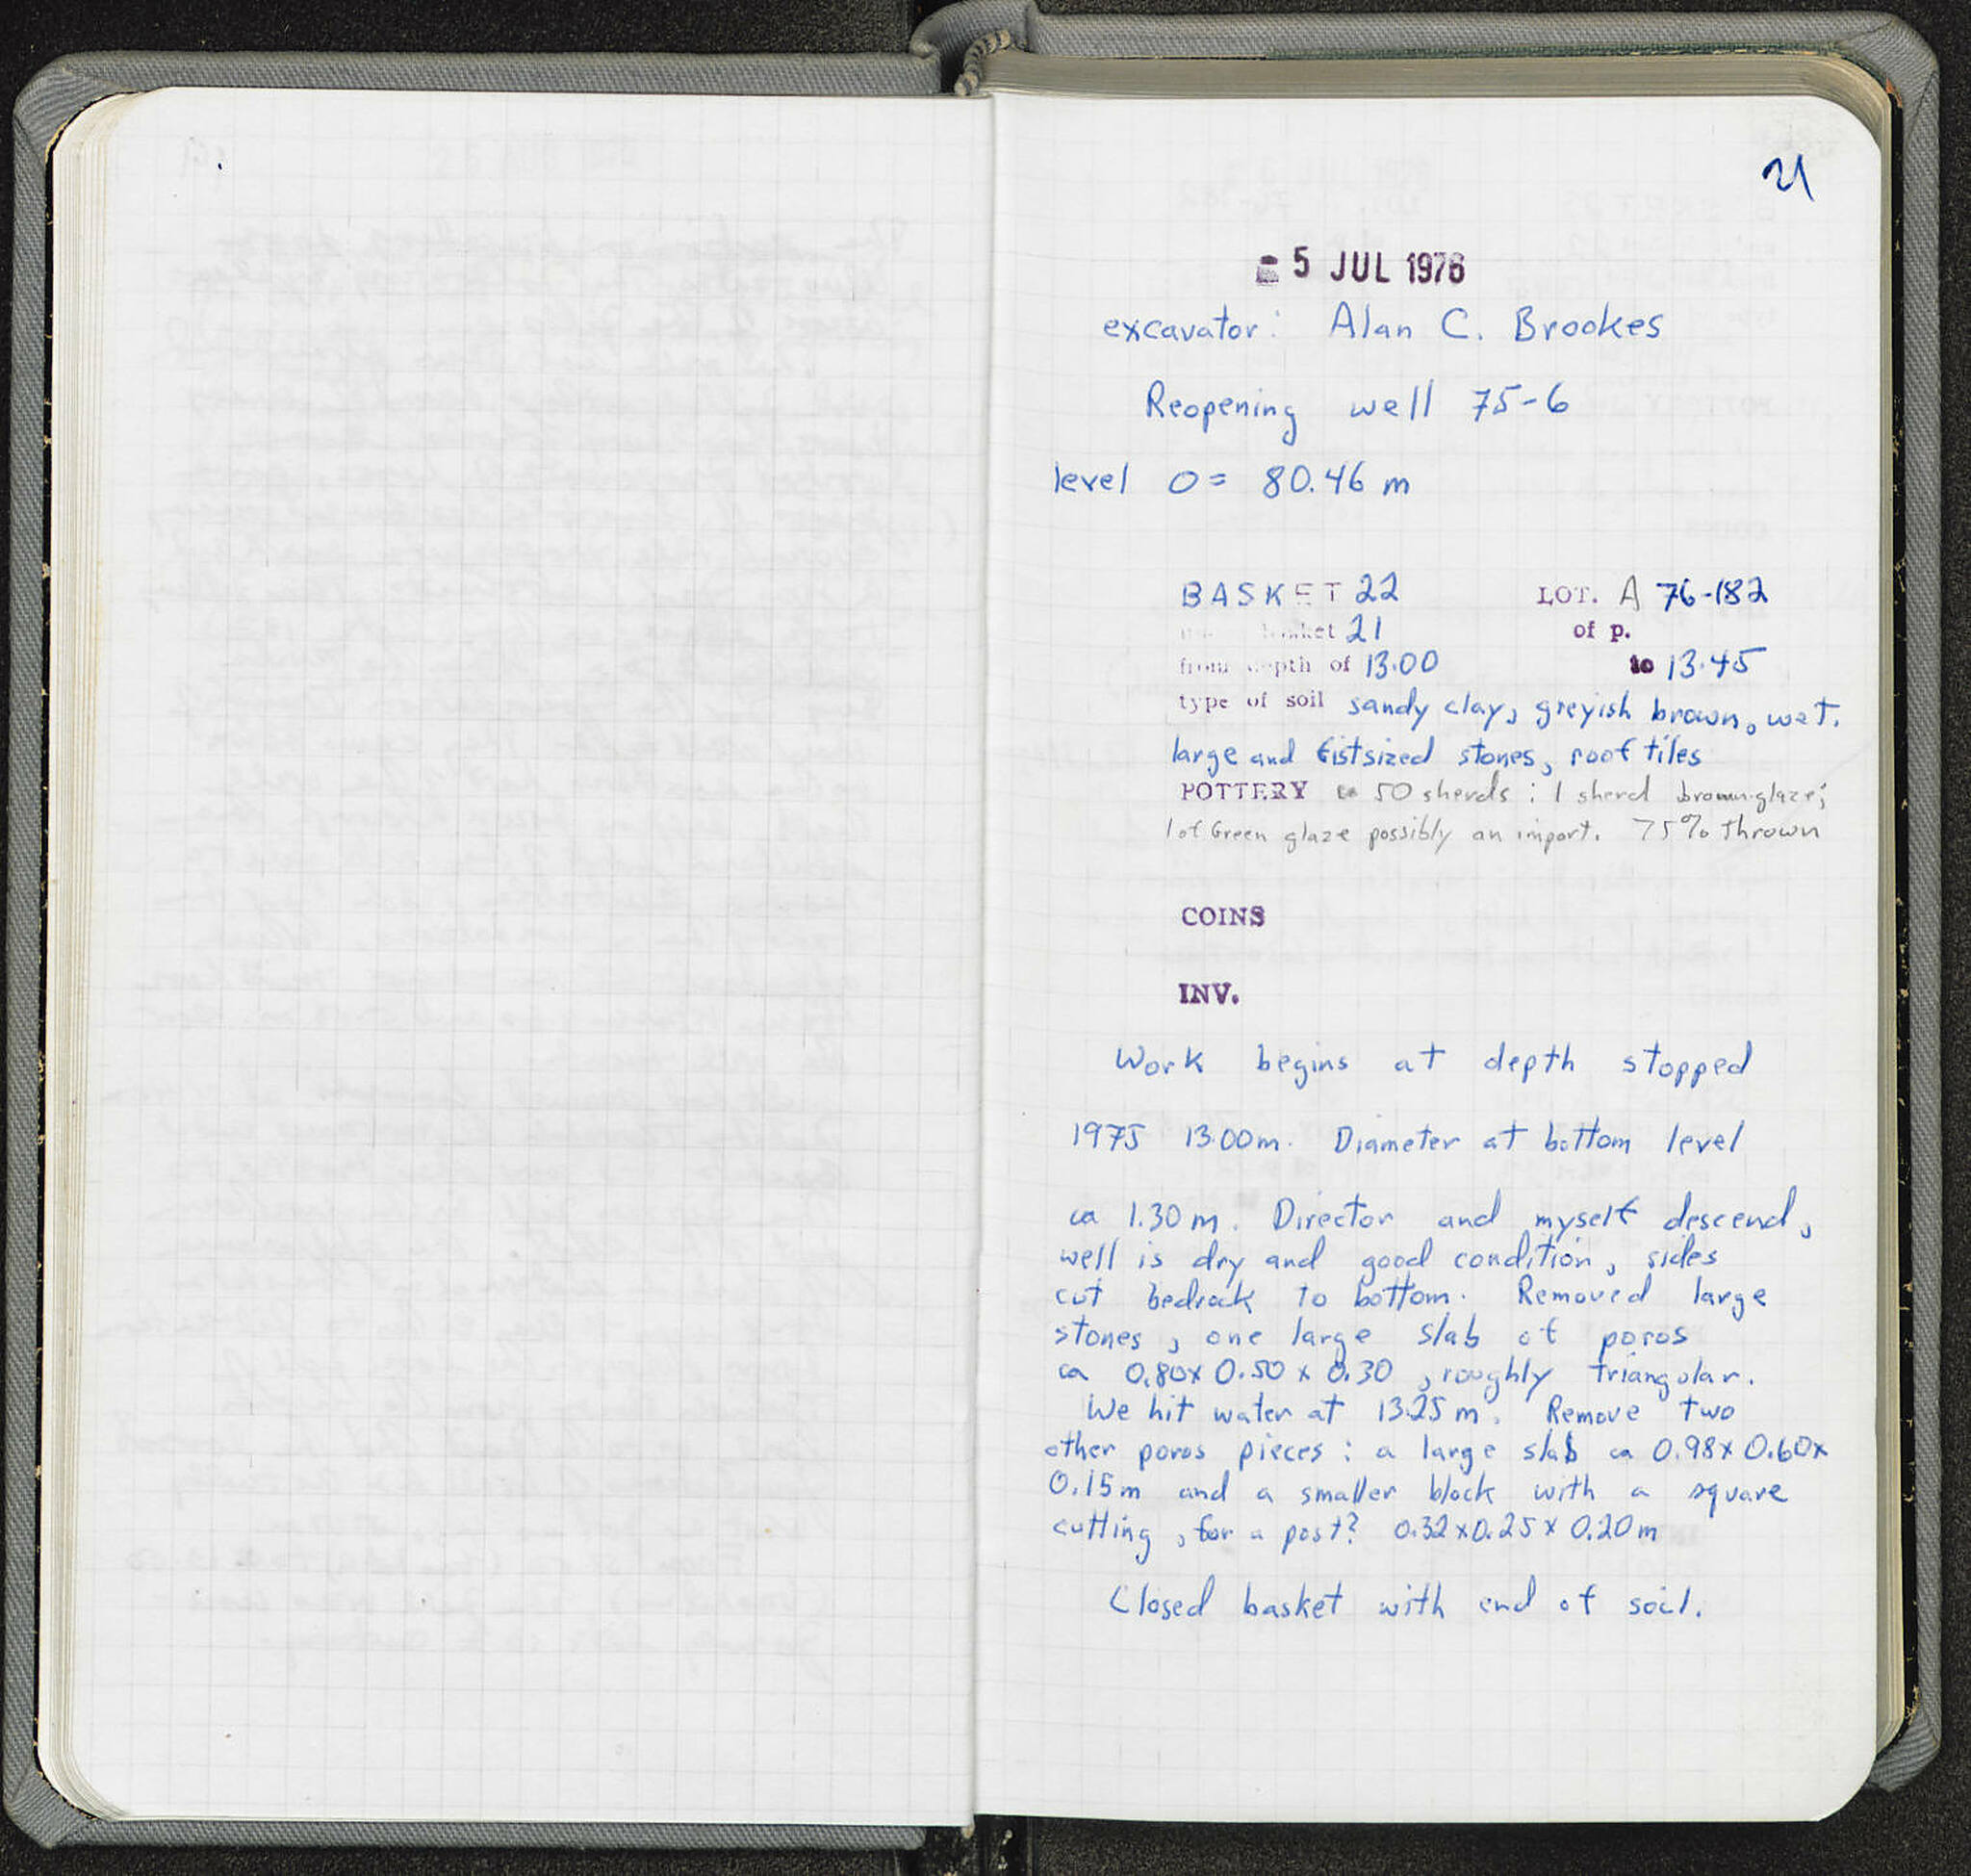 21
5 JUL 1976
excavator: Alan C. Brookes
Reopening well 75-6
level 0 = 80.46 m
BASKET 22 LOT. A 76-182
basket 21 of p.
from depth of 13.00 to 13.45
type of soil sandy clay, greyish brown, wet.
large and fistsized stones, roof tiles
POTTERY 50 sherds : 1 sherd brown glaze;
1 of Green glaze possibly an import. 75% thrown
COINS
INV.
Work begins at depth stopped
1975 13.00m. Diameter at bottom level
ca 1.30 m. Director and myself descend,
well is dry and good condition, sides
cut bedrock to bottom. Removed large
stones, one large slab of poros
ca 0.80 x 0.50 x 0.30, roughly triangular.
We hit water at 13.25 m. Remove two
other poros pieces : a large slab ca 0.98 x 0.60 x
0.15 m and a smaller block with a square
cutting, for a post? 0.32 x 0.25 x 0.20 m
Closed basket with end of soil.